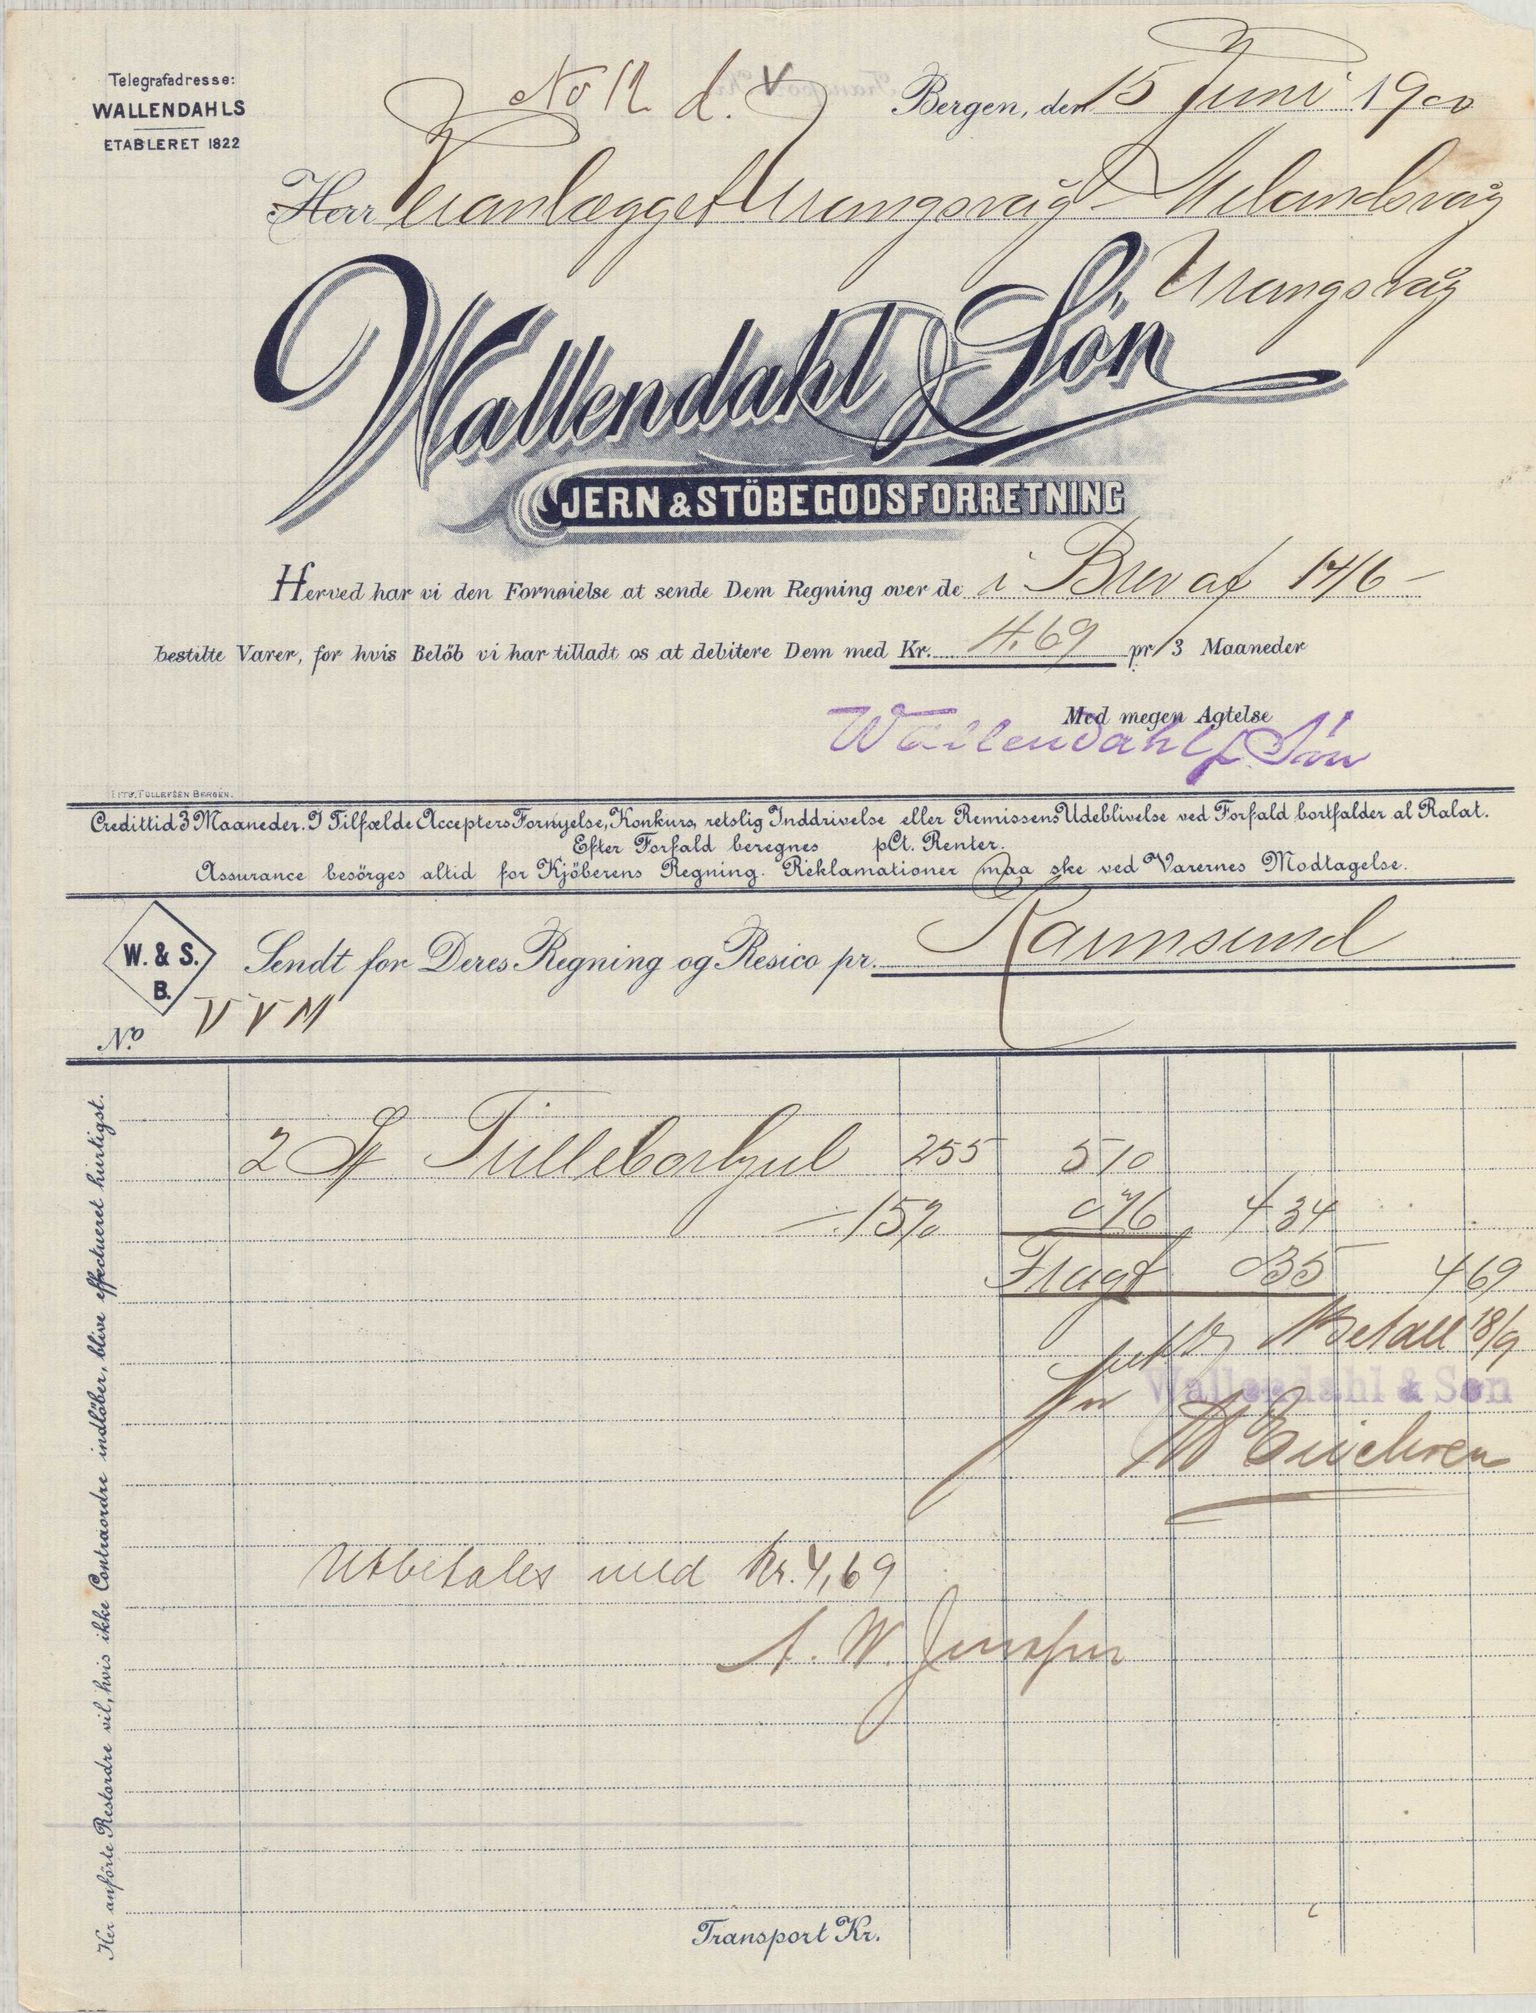 Telegrafadresse:
WALLENDAHLS
ETABLERET 1822
No 12 d. V
Bergen, den 15 Juni 1900
Herr Veianlægget Urangsvåg - Melandsvåg
Urangsvåg
Wallendahl & Søn
JERN & STÖBEGODSFORRETNING
Herved har vi den Fornøielse at sende Dem Regning over de i Brev af 14/6 -
bestilte Varer, for hvis Belöb vi har tilladt os at debitere Dem med Kr. 4.69 pr/3 Maaneder
Med megen Agtelse
Wallendahl & Søn
LITH. TOLLEFSEN BERGEN.
Credittid 3 Maaneder. I Tilfælde Accepters Fornyelse, Konkurs, retslig Inddrivelse eller Remissens Udeblivelse ved Forfald bortfalder al Rabat.
Efter Forfald beregnes pCt. Renter.
Assurance besörges altid for Kjöberens Regning. Reklamationer maa ske ved Varernes Modtagelse.
W. & S.
B.
Sendt for Deres Regning og Resico pr. Karmsund
No. V V M
2 St Trilleborhjul 255 510
÷ 15% 076 434
Fragt 035 469
Betalt 18/9
for Wallendahl & Søn
Utbetales med Kr. 4,69
A. W.
Transport Kr.
Her anförte Restordre vil, hvis ikke Contraordre indlöber, blive effectueret hurtigst.